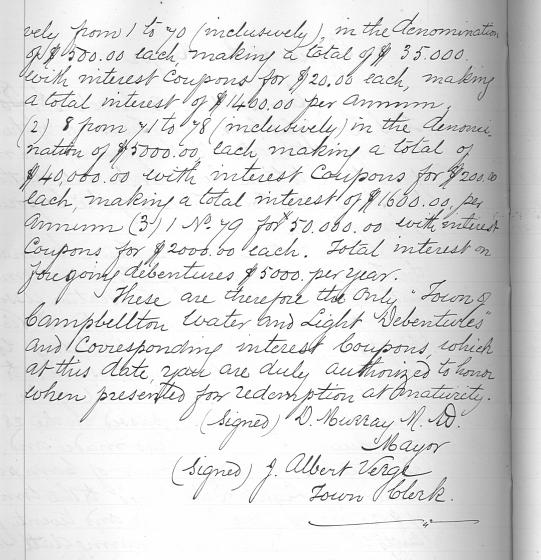 vely from 1 to 70 (inclusively) in the denomination
of $500.00 each, making a total of $35.000.
with interest Coupons for $20.00 each, making
a total interest of $1400.00 per annum,
(2) 8 from 71 to 78 (inclusively) in the denomi-
nation of $5000.00 each making a total of
$40,000.00 with interest Coupons for $200.00
each, making a total interest of $1600.00, per
Annum (3) 1 No. 79 for $50.000.00 with interest
Coupons for $2000.00 each. Total interest on
foregoing debentures $5000. per year.
These are therefore the only "Town of
Campbellton Water and Light Debentures"
and Corresponding interest Coupons, which
at this date, you are duly authorized to honor
when presented for redemption at maturity.
(signed) D. Murray M.D.
Mayor
(signed) J. Albert Verge
Town Clerk.